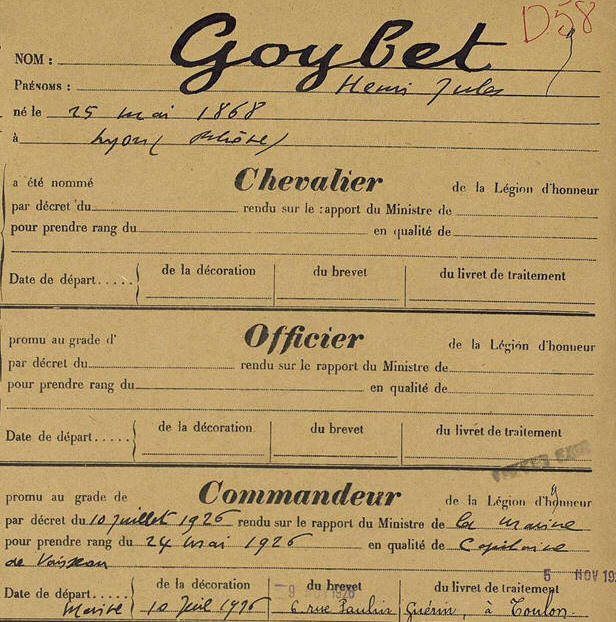 D58
NOM : Goybet
PRÉNOMS : Henri Jules
né le 25 mai 1868
à Lyon (Rhône)
a été nommé Chevalier de la Légion d'honneur
par décret du rendu sur le rapport du Ministre de
pour prendre rang du en qualité de
Date de départ..... de la décoration du brevet du livret de traitement
promu au grade d' Officier de la Légion d'honneur
par décret du rendu sur le rapport du Ministre de
pour prendre rang du en qualité de
Date de départ..... de la décoration du brevet du livret de traitement
promu au grade de Commandeur de la Légion d'honneur
par décret du 10 juillet 1926 rendu sur le rapport du Ministre de la marine
pour prendre rang du 24 mai 1926 en qualité de Capitaine
de Vaisseau
5 NOV 19
Date de départ..... de la décoration du brevet du livret de traitement
9 1926
10 Juil 1926 6 rue Paulin Guérin, à Toulon.